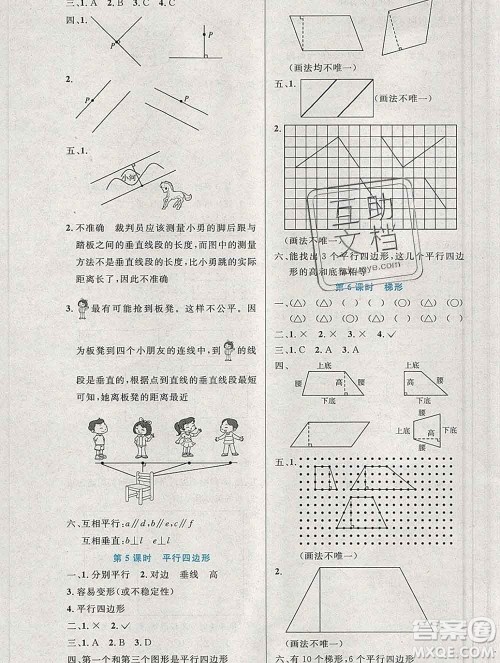 三、1. A 2. B 3. C 4. C
四、1.
P
P
2.
P
P
五、1.
小河
2. 不准确 裁判员应该测量小勇的脚后跟与
踏板之间的垂直线段的长度,而图中的测量
方法不是垂直线段的长度,比小勇跳的实际
距离长了
3. 最有可能抢到板凳。这样不公平。因
为板凳到四个小朋友的连线中,到
的是垂直的,根据点到直线的垂直线段最短
可知,她离板凳的距离最近
六、互相平行:a∥d b∥c g∥h
互相垂直:b⊥l e⊥l
第 5 课时 平行四边形
一、1. 分别平行 2. 对边 垂线 高
3. 容易变形(或不稳定性)
4. 平行四边形
二、1. × 2. × 3. ✓
三、1. D 2. A 3. B 4. D
四、第一个和第三个图形是平行四边形
(画法均不唯一)
五、1.
(画法不唯一)
2.
(画法不唯一)
六、能找出 3 个平行四边形,这几个平行四边
形的高和底都相等
第 6 课时 梯形
一、(△) (○) (△) (○) (△) (○)
二、1. × 2. × 3. × 4. ✓
三、1. C 2. A 3. A
四、
上底
腰
高
腰
下底
上底
腰
高
腰
下底
五、1.
(画法不唯一)
2.
(画法不唯一)
六、有 10 个梯形,6 个平行四边形
互助
文档
作业帮手
MXQE.COM